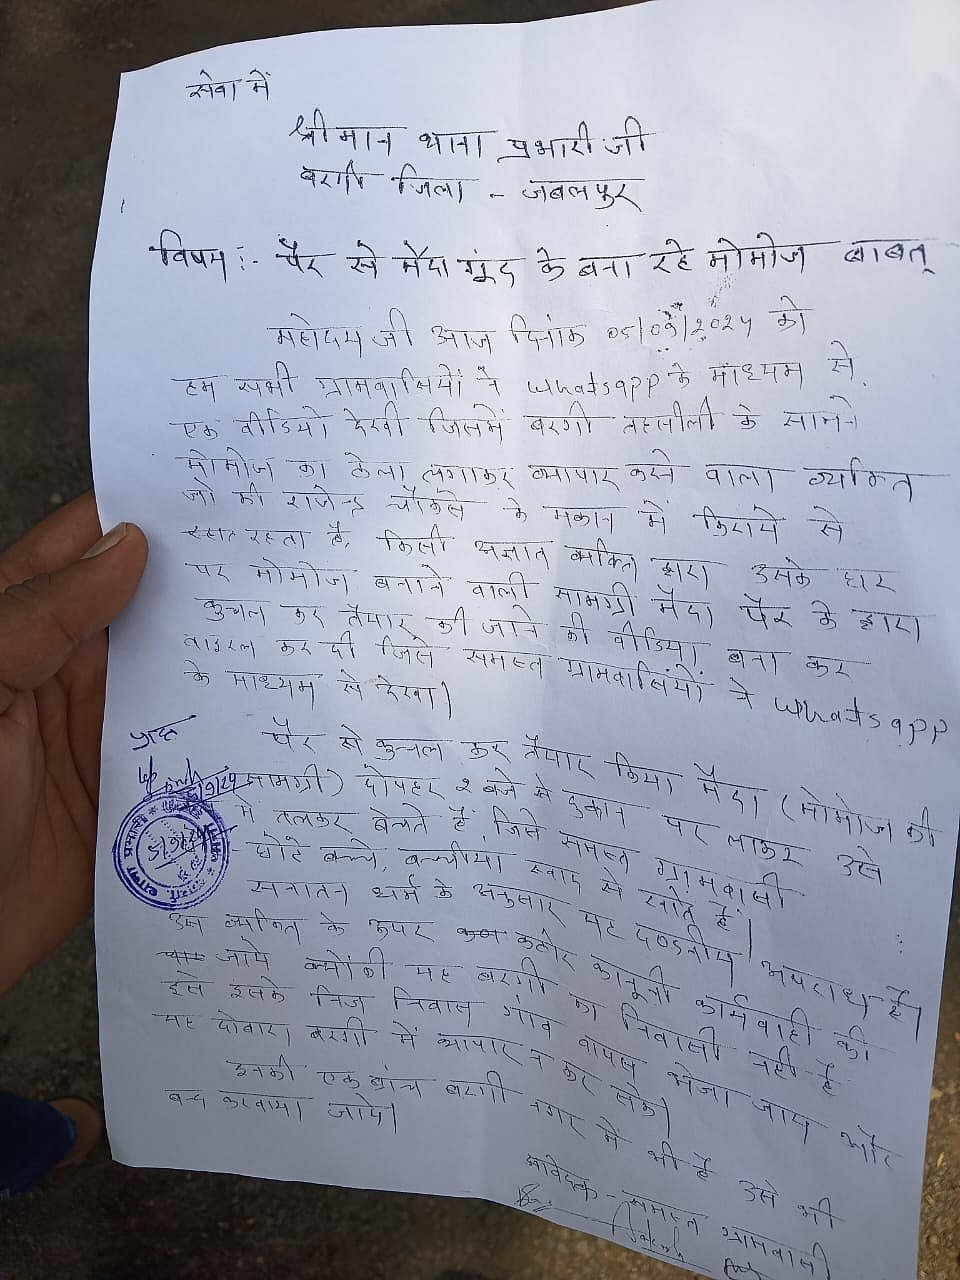 सेवा में
श्रीमान थाना प्रभारी जी
बरगी जिला - जबलपुर
विषय :- पैर से मैदा गूंद के बना रहे मोमोज बाबत्
महोदय जी आज दिनांक 05/09/2024 को
हम सभी ग्रामवासियों ने whatsapp के माध्यम से
एक वीडियो देखी जिसमें बरगी तहसीली के सामने
मोमोज का ठेला लगाकर व्यापार करने वाला व्यक्ति
जो की राजेन्द्र चौकसे के मकान में किराये से
रहता है, किसी अज्ञात व्यक्ति द्वारा उसके घर
पर मोमोज बनाने वाली सामग्री मैदा पैर के द्वारा
कुचल कर तैयार की जाने की वीडियो बना कर
वाइरल कर दी जिसे समस्त ग्रामवासियों ने whatsapp
के माध्यम से देखा।
पैर से कुचल कर तैयार किया मैदा (मोमोज की
सामग्री) दोपहर 2 बजे से दुकान पर लाकर उसे
में तलकर बेचते है, जिसे समस्त ग्रामवासी
छोटे बच्चे, बच्चीयां स्वाद से खाते हैं।
सनातन धर्म के अनुसार यह दण्डनीय अपराध है।
उस व्यक्ति के ऊपर कठोर कानूनी कार्यवाही की
जाये क्योंकी यह बरगी का निवासी नही है
इसे इसके निज निवास गांव वापस भेजा जाय और
यह दोबारा बरगी में व्यापार न कर सके।
इनकी एक ब्रांच बरगी नगर में भी है उसे भी
बन्द करवाया जाये।
आवेदक - समस्त ग्रामवासी
प्राप्त
थाना प्रभारी